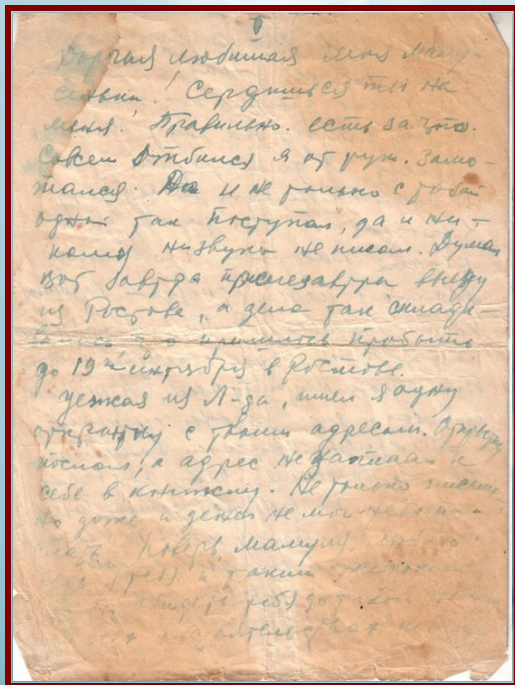 Дорогая любимая моя маму-
сенька! Сердишься ты на
меня! Правильно. есть за что.
Совсем отбился я от рук. Замо-
тался. Да и не только с тобой
одной так поступал, да и ни-
кому ни звука не писал. Думал
вот завтра послезавтра выеду
из Ростова, а дела так склады-
пробыть
до 19го сентября в Ростове.
Уезжая из Л-да, имел я одну
открытку с твоим адресом. Открытку
послал, а адрес не записал к
себе в книжку. Не только писать
но даже и денег не мог тебе
Поверь мамуля,
и таким
тебя до такой